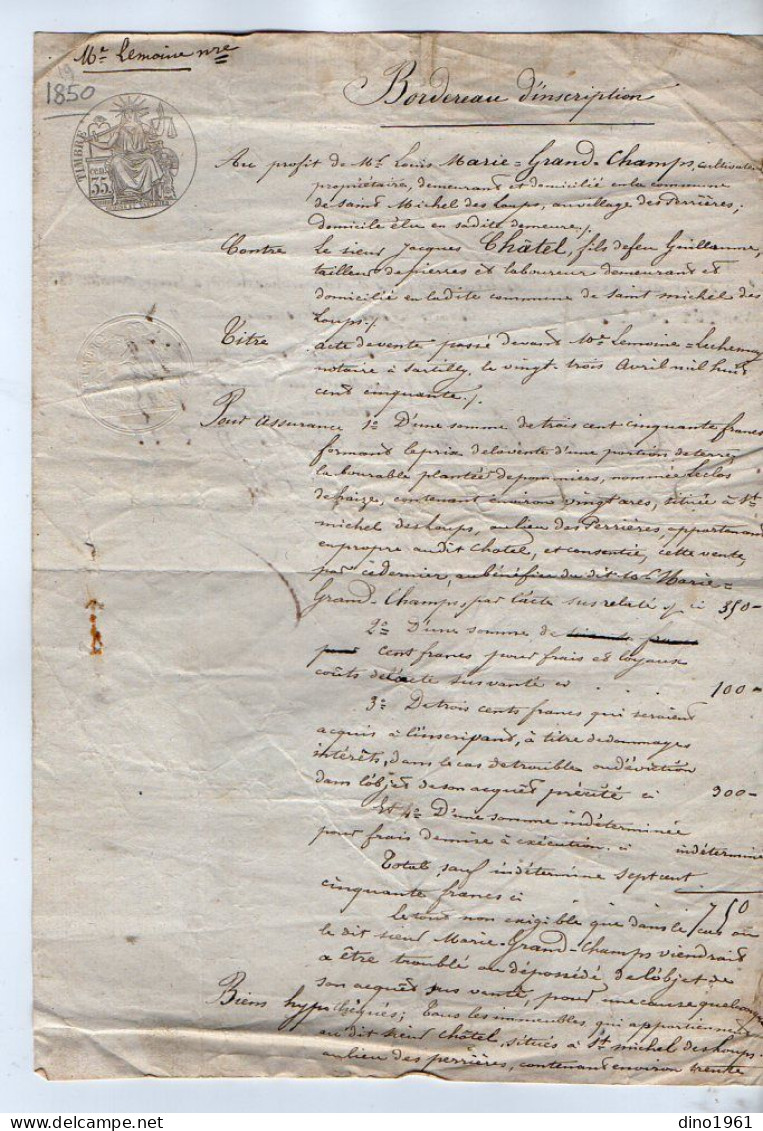 Me Lemoine nre
19
1850
Bordereau d'inscription
TIMBRE
35 cen.
Au profit de Mr Louis Marie=Grand-Champs, cultivateur
propriétaire, demeurant et domicilié en la commune
de Saint Michel des Loups, au village des Perrières;
domicile élu en sadite demeure./.
Contre le sieur Jacques Châtel, fils de feu Guillaume,
tailleur de pierres et laboureur demeurant et
domicilié en ladite commune de Saint Michel des
Loups./.
Titre acte de vente passé devant Me Lemoine=
notaire à Sartilly, le vingt-trois Avril mil huit
cent cinquante./.
Pour assurance 1o D'une somme de trois cent cinquante francs
formant le prix de la vente d'une portion de terre
labourable plantée de pommiers, nommée le clos
de fraize, contenant environ vingt ares, située à St
michel des Loups, au lieu des Perrières, appartenant
en propre au dit Chatel, et consentie, cette vente,
par ce dernier, au bénéfice du dit Sr Marie=
Grand-Champs par l'acte sus relaté ci 350-
2o D'une somme de
cent francs pour frais et loyaux
coûts de l'acte sus vanté ci . . . 100-
3o De trois cents francs qui seraient
acquis à l'inscrivant, à titre de dommages
intérêts, dans le cas de trouble ou d'éviction
dans l'objet de son acquêt précité ci 300-
Et 4o D'une somme indéterminée
pour frais de mise à exécution. ci indéterminé
Total sauf indéterminé sept cent
cinquante francs ci 750
le tout non exigible que dans le cas où
le dit sieur Marie-Grand-Champs viendrait
a être troublé ou dépossédé de l'objet de
son acquêt sus vanté, pour une cause quelconque
Biens hypothéqués; Tous les immeubles qui appartiennent
au dit sieur Châtel, situés à St michel des Loups
au lieu des perrières, contenant environ trente
dino1961